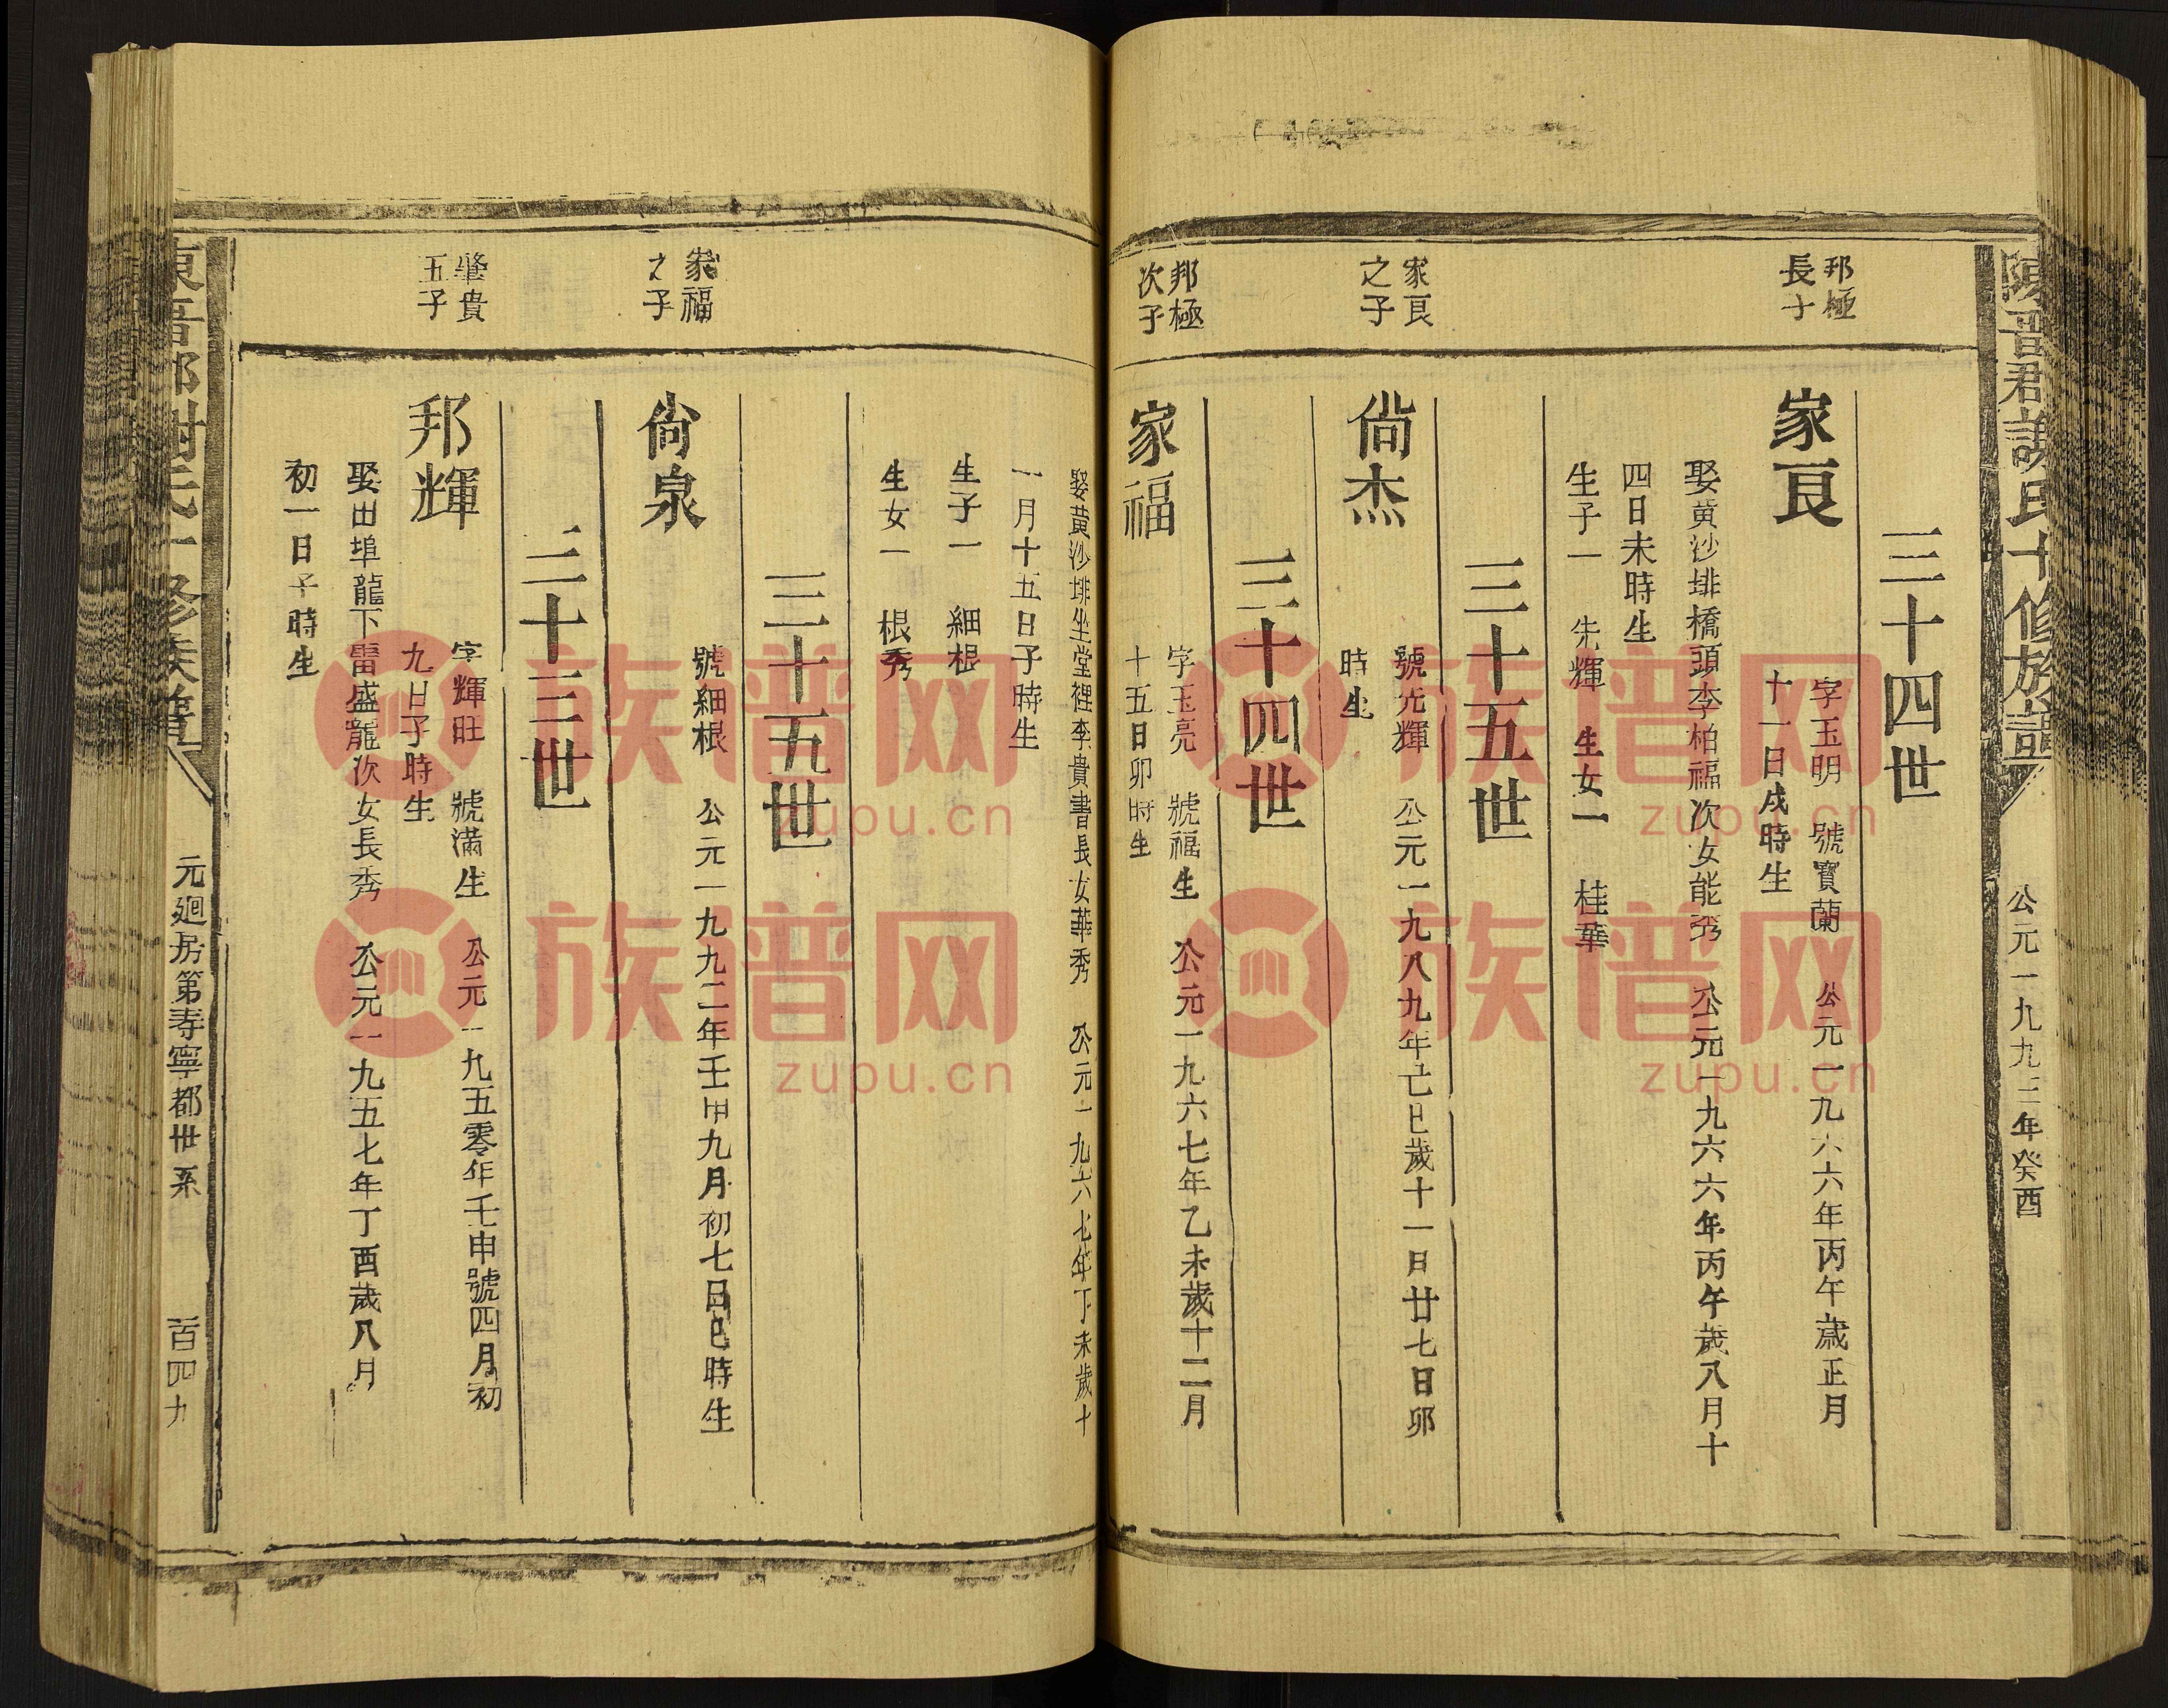 陳晋郡謝氏十修族譜
公元一九九三年癸酉
三十四世
邦極
長子
家良
字玉明 號寶蘭 公元一九六六年丙午歲正月
十一日戌時生
娶黄沙排橋頭李柏福次女能秀 公元一九六六年丙午歲八月十
四日未時生
生子一 先輝 生女一 桂華
三十五世
家良
之子
尙杰
號光輝 公元一九八九年己巳歲十一日廿七日卯
時生
三十四世
邦極
次子
家福
字玉亮 號福生 公元一九六七年乙未歲十二月
十五日卯時生
娶黄沙排坐堂裡李貴書長女華秀 公元一九六七年丁未歲十
一月十五日子時生
生子一 細根
生女一 根秀
三十五世
家福
之子
尙泉
號細根 公元一九九二年壬申九月初七日巳時生
三十三世
肇貴
五子
邦輝
字輝旺 號滿生 公元一九五零年壬申號四月初
九日子時生
娶田埠龍下雷盛龍次女長秀 公元一九五七年丁酉歲八月
初一日子時生
元廻房第寿寧都世系
百四九
族谱网
zupu.cn
族谱网
zupu.cn
族谱网
zupu.cn
族谱网
zupu.cn